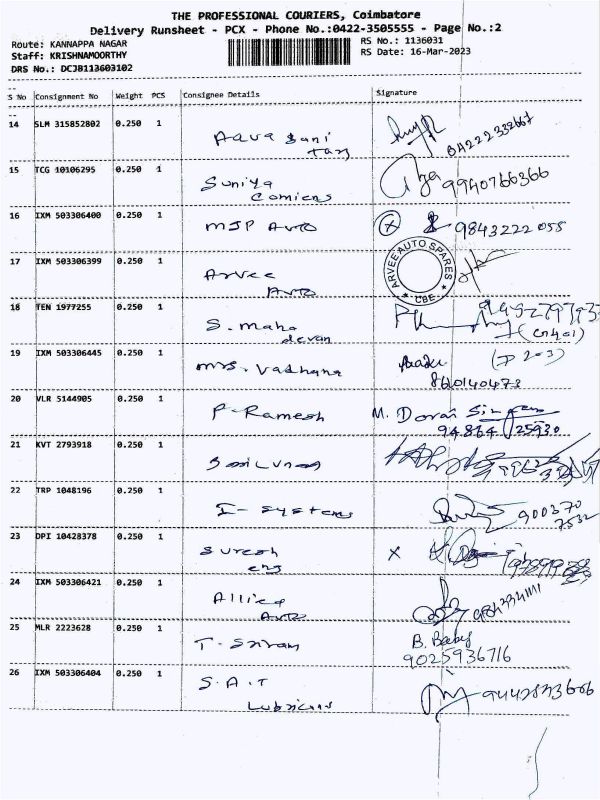 THE PROFESSIONAL COURIERS, Coimbatore
Delivery Runsheet - PCX - Phone No.:0422-3505555 - Page No.:2
Route: KANNAPPA NAGAR
RS No.: 1136031
Staff: KRISHNAMOORTHY
RS Date: 16-Mar-2023
DRS No.: DCJB113603102
S No Consignment No Weight PCS Consignee Details Signature
14 SLM 315852802 0.250 1
04222332667
15 TCG 10106295 0.250 1
Suniya
9940766366
16 IXM 503306400 0.250 1
MJP Auto
9843222055
17 IXM 503306399 0.250 1
Arvee
Auto
ARVEE AUTO SPARES
CBE
18 TEN 1977255 0.250 1
S. Maha
devan
19 IXM 503306445 0.250 1
Mrs. Vadhana
860140473
20 VLR 5144905 0.250 1
P-Ramesh
M. Dorai
94864 25930
21 KVT 2793918 0.250 1
22 TRP 1048196 0.250 1
I-Systems
900370
7532
23 DPI 10428378 0.250 1
Suresh
eng
X
24 IXM 503306421 0.250 1
Allied
Auto
25 MLR 2223628 0.250 1
T. Sriram
B. Baby
9025936716
26 IXM 503306404 0.250 1
S.A.T